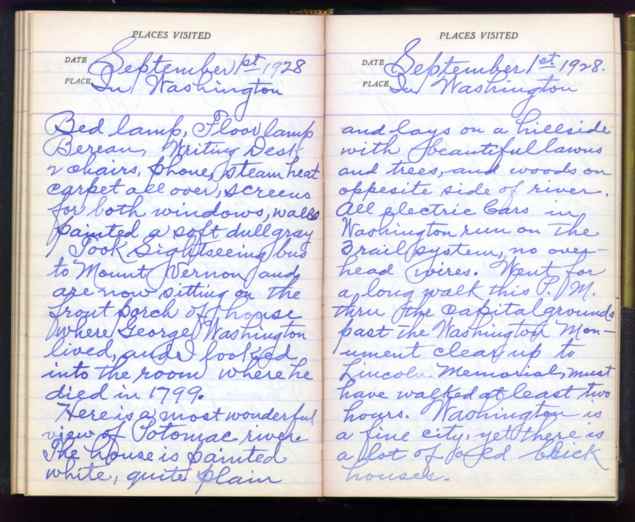 PLACES VISITED
DATE September 1st 1928
PLACE In Washington
Bed lamp, Floor lamp
Bereau, Writing Desk
2 chairs, phone, steam heat
carpet all over, screens
for both windows, walls
painted a soft dull gray
Took Sightseeing bus
to Mount Vernon and
are now sitting on the
front porch of house
where George Washington
lived, and looked
into the room where he
died in 1799.
Here is a most wonderful
view of Potomac river
The house is painted
white, quite plain
PLACES VISITED
DATE September 1st 1928.
PLACE In Washington
and lays on a hillside
with beautiful lawns
and trees, and woods on
opposite side of river.
All electric Cars in
Washington run on the
3 rail system, no over-
head wires. Went for
a long walk this P.M.
thru the Capital grounds
past the Washington Mon-
ument clear up to
Lincoln Memorial, must
have walked at least two
hours. Washington is
a fine city, yet there is
a lot of red brick
houses.